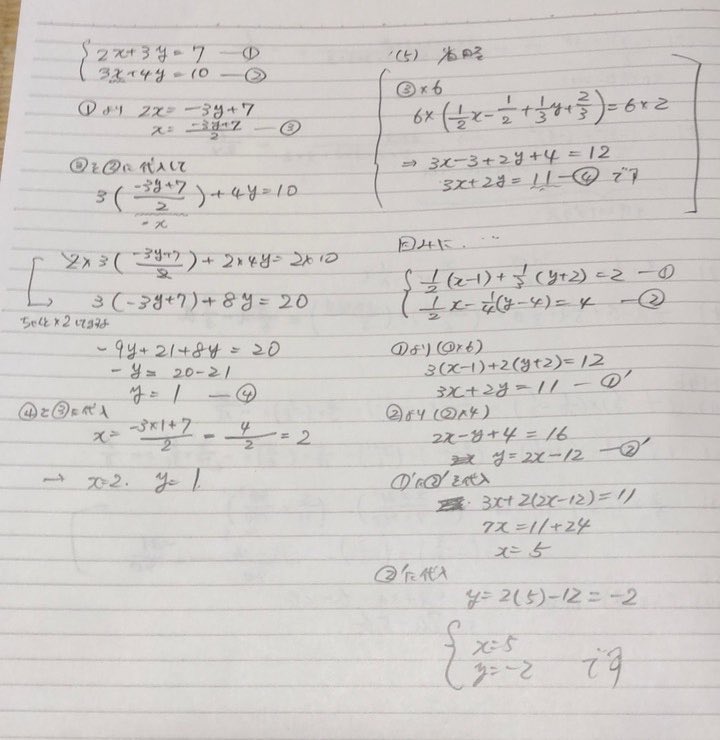 2x+3y=7 —①
3x+4y=10 —②
①より 2x=-3y+7
x=\frac{-3y+7}{2} —③
③を②に代入して
3(\frac{-3y+7}{2})+4y=10
x
2×3(\frac{-3y+7}{2})+2×4y=2×10
3(-3y+7)+8y=20
-9y+21+8y=20
-y=20-21
y=1 —④
④を③に代入
x=\frac{-3×1+7}{2}=\frac{4}{2}=2
→ x=2. y=1.
(5) 省略
③×6
6×(\frac{1}{2}x-\frac{1}{2}+\frac{1}{3}y+\frac{2}{3})=6×2
⇒ 3x-3+2y+4=12
3x+2y=11 —④ です
同様に…
\frac{1}{2}(x-1)+\frac{1}{3}(y+2)=2 —①
\frac{1}{2}x-\frac{1}{4}(y-4)=4 —②
①より(①×6)
3(x-1)+2(y+2)=12
3x+2y=11 —①'
②より(②×4)
2x-y+4=16
y=2x-12 —②'
①'に②'を代入
3x+2(2x-12)=11
7x=11+24
x=5
②'に代入
y=2(5)-12=-2
x=5
y=-2 です